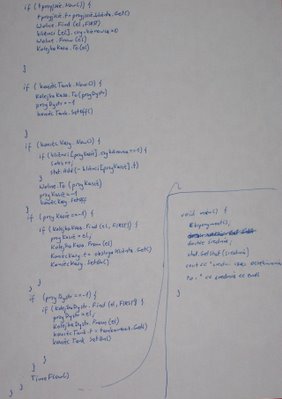 if (przyjscie.Now()) {
przyjscie.t= przyjscieklienta.Get()
Wolne.Find (el, FIRST)
klienci [el].
Wolne.From (el)
KolejkaKasa.To(el)
}
if (koniecTank.Now()) {
KolejkaKasa.To(przyDystr)
przyDystr=-1
koniecTank.SetOff()
}
if (koniecKasy.Now()) {
if (klienci[przyKasie].
stat.Add(- klienci[przyKasie].t)
}
Wolne.To (przyKasie)
przyKasie=-1
koniecKasy.SetOff
}
if (przyKasie ==-1) {
if (KolejkaKasa.Find (el, FIRST)) {
przyKasie = el;
KolejkaKasa.From (el)
KoniecKasy.t= obsluga Klienta.Get()
KoniecKasy.SetOn().
} }
if (przyDystr ==-1) {
if (kolejkaDystr.Find (el, FIRST) {
przyDystr = el;
KolejkaDystr.From (el)
koniecTank.t = tankowanie.Get()
koniecTank.SetOn()
}
}
TimeFlow()
} }
void main() {
program();
double srednia;
stat.GetStat (srednia)
cout << "sredni czas oczekiwania
to - " << srednia << endl
}